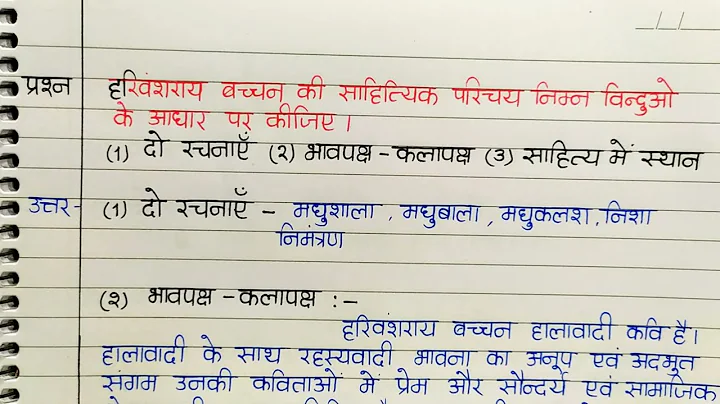 प्रश्न हरिवंशराय बच्चन की साहित्यिक परिचय निम्न विन्दुओ
के आधार पर कीजिए।
(1) दो रचनाएँ (२) भावपक्ष - कलापक्ष (३) साहित्य में स्थान
उत्तर - (1) दो रचनाएँ - मधुशाला, मधुबाला, मधुकलश, निशा
निमंत्रण
(२) भावपक्ष - कलापक्ष :-
हरिवंशराय बच्चन हालावादी कवि है।
हालावादी के साथ रहस्यवादी भावना का अनूप एवं अदभूत
संगम उनकी कविताओं में प्रेम और सौन्दर्य एवं सामाजिक